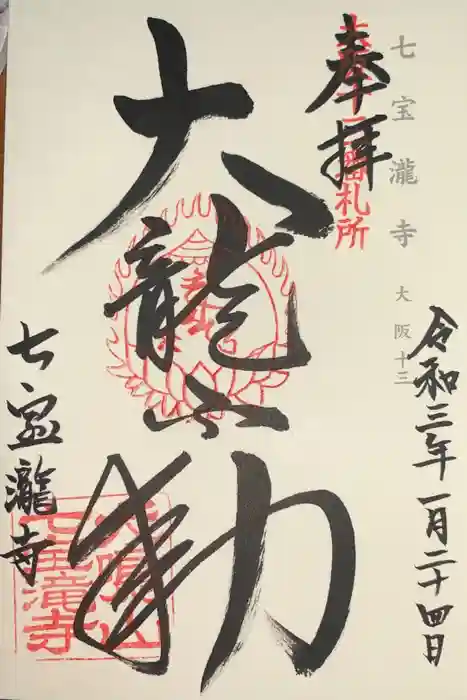 七宝瀧寺 大阪十三
令和三年一月二十四日
奉拝
番札所
大龍不動
七宝瀧寺
犬鳴山
七宝滝寺